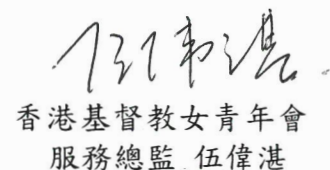 伍偉湛
香港基督教女青年會
服務總監 伍偉湛